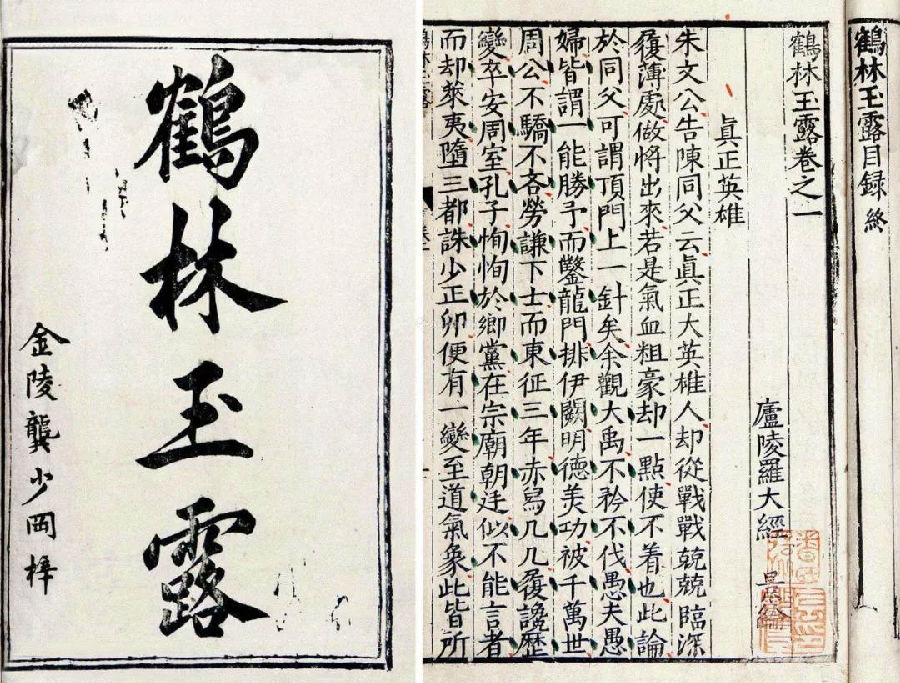 鶴林玉露
金陵龔少岡梓
鶴林玉露目録終
鶴林玉露卷之一
廬陵羅大經景綸
眞正英雄
朱文公告陳同父云眞正大英雄人却從戰戰兢兢臨深
履薄處做將出來若是氣血粗豪却一點使不着也此論
於同父可謂頂門上一針矣余觀大禹不矜不伐愚夫愚
婦皆謂一能勝予而鑿龍門排伊闕明德美功被千萬世
周公不驕不吝勞謙下士而東征三年赤舄几几履讒歷
變卒安周室孔子恂恂於鄉黨在宗廟朝廷似不能言者
而却萊夷墮三都誅少正卯便有一變至道氣象此皆所